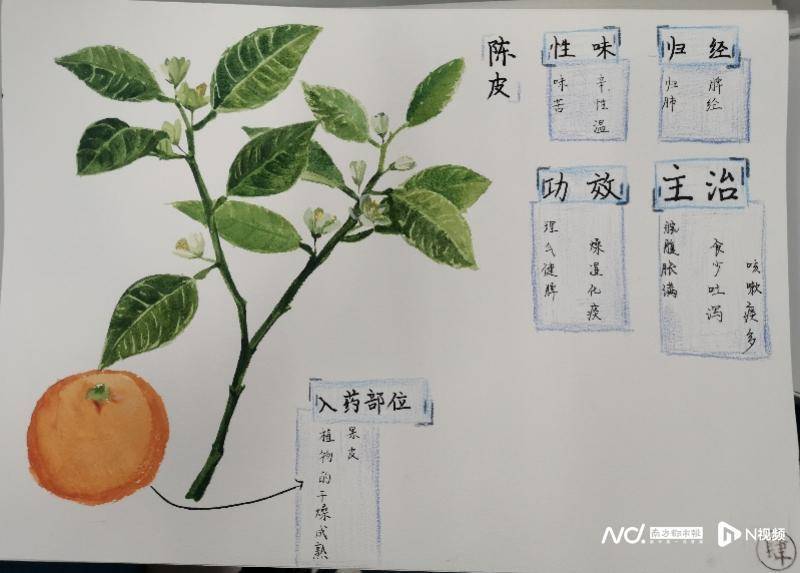 陈皮
性味
味苦
辛性温
归经
归肺
脾经
功效
理气健脾
燥湿化痰
主治
脘腹胀满
食少吐泻
咳嗽痰多
入药部位
植物的干燥成熟
果皮
南方都市报
N视频
肆